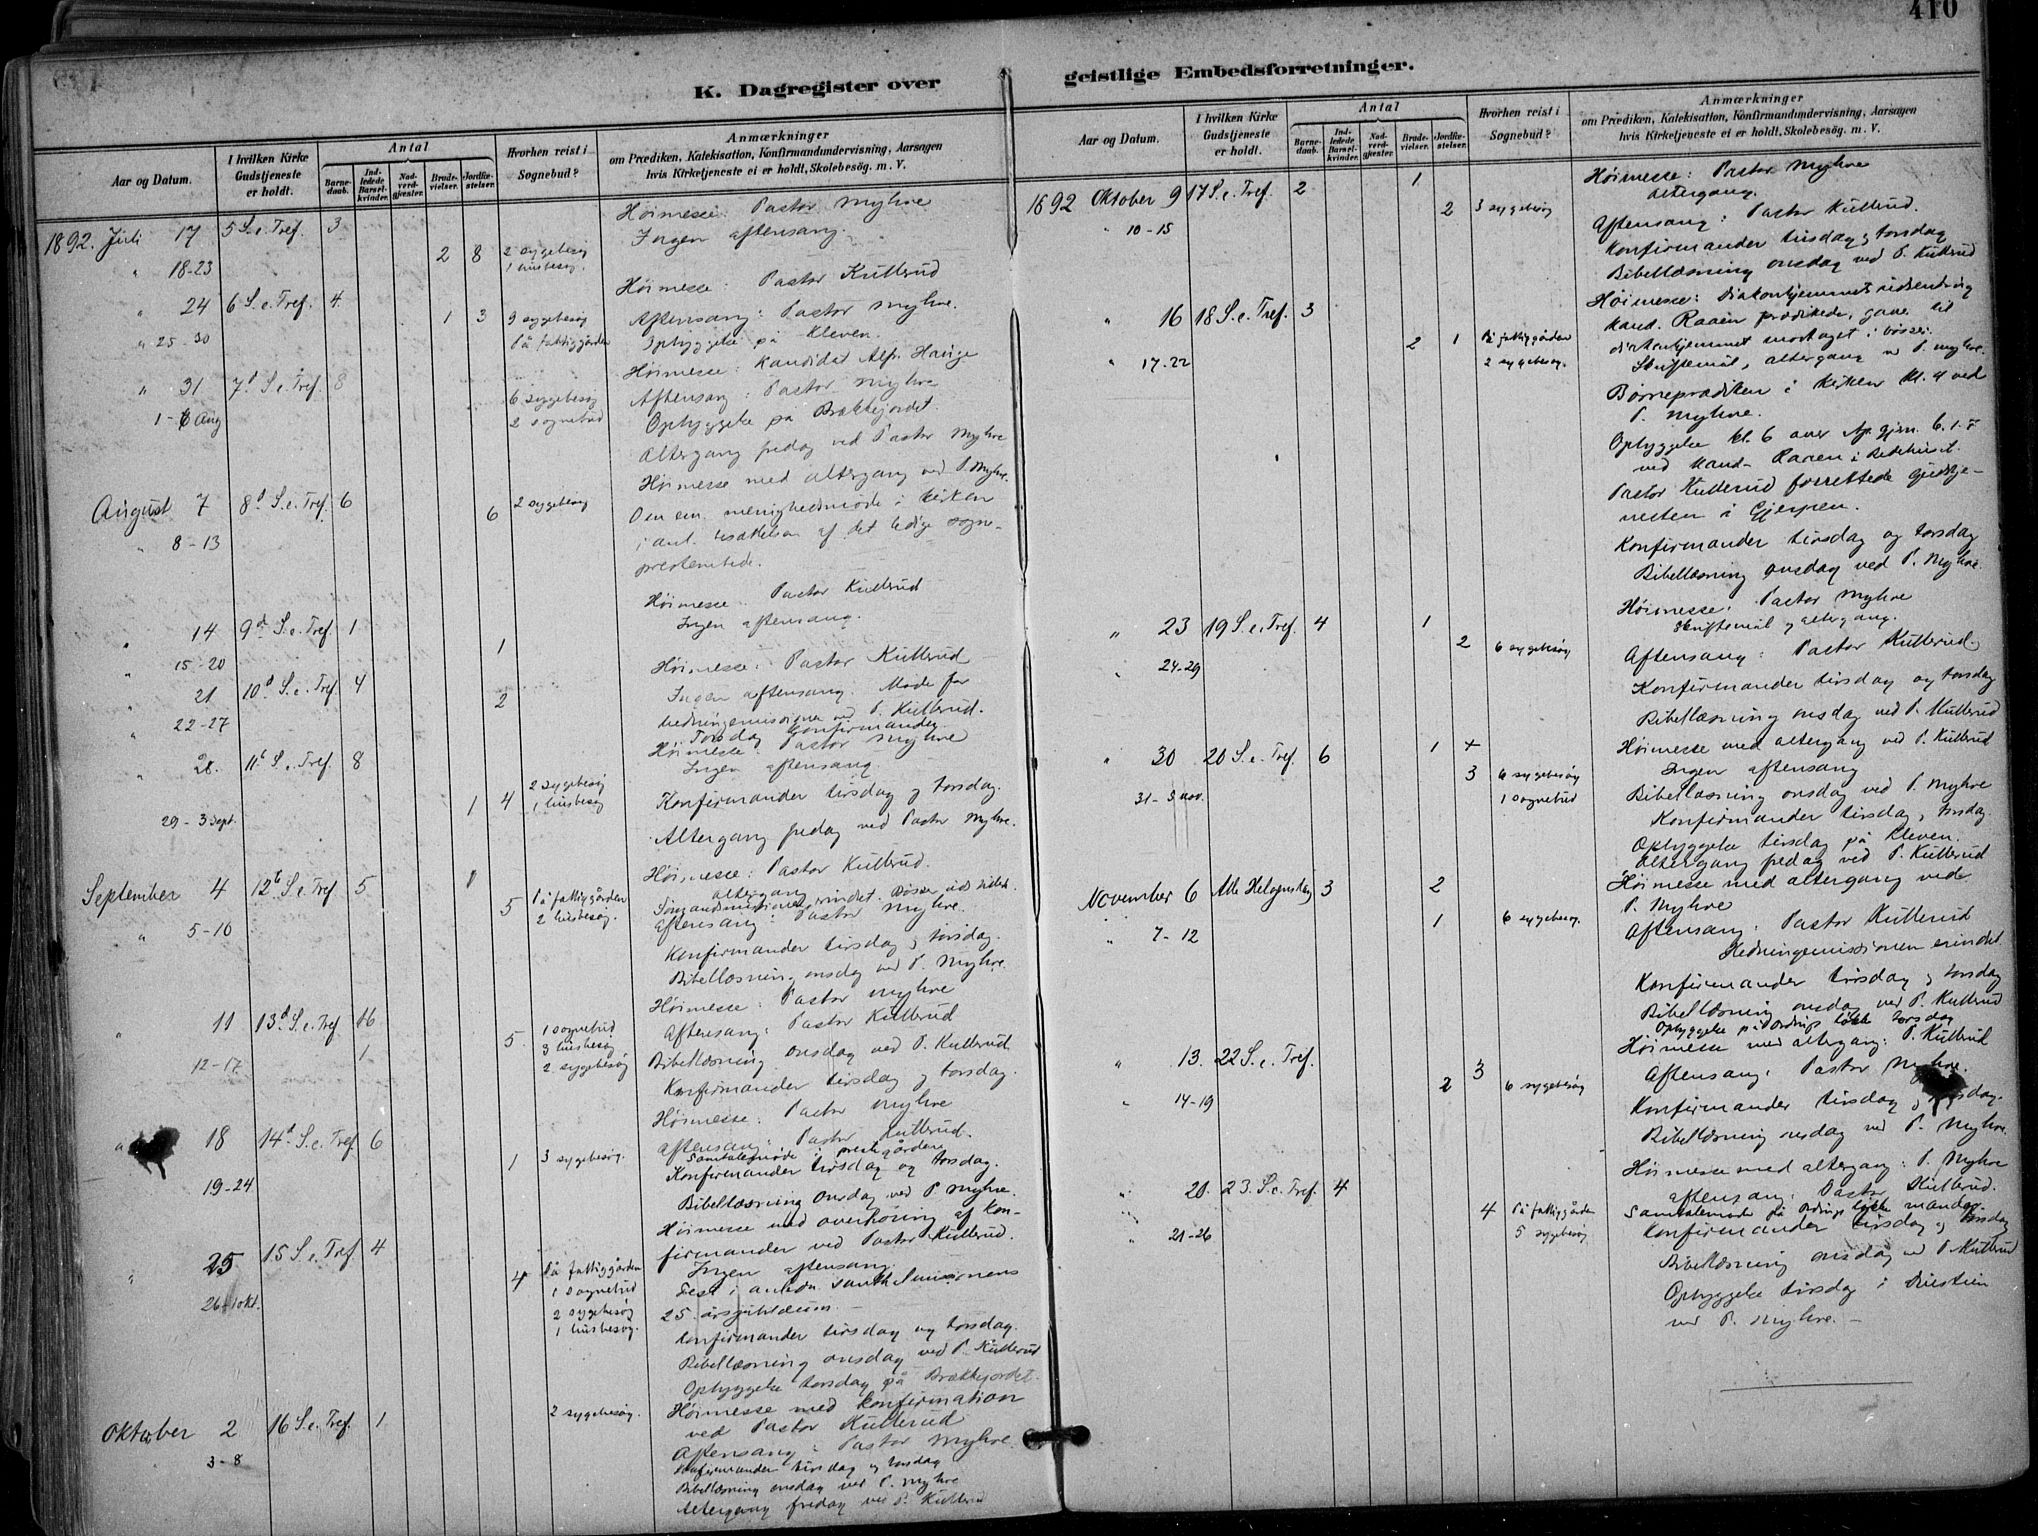 410
K. Dagregister over geistlige Embedsforretninger.
Aar og Datum.
I hvilken Kirke Gudstjeneste er holdt.
Antal
Barnedaab.
Indledede Barselkvinder.
Nadverdgjester.
Brudevielser.
Jordfæstelser.
Hvorhen reist i Sognebud?
Anmærkninger
om Prædiken, Katekisation, Konfirmandundervisning, Aarsagen
hvis Kirketjeneste ei er holdt, Skolebesög. m. V.
1892. Juli 17 5 S. e. Tref. 3 Høimesse: Pastor Myhre
Ingen aftensang.
" 18-23 2 8 2 sygebesøg
1 husbesøg.
" 24 6 S. e. Tref. 4 Høimesse: Pastor Kullerud
Aftensang: Pastor Myhre.
" 25-30 1 3 9 sygebesøg
På fattiggården Opbyggelse på Kleven.
" 31 7d S. e. Tref. 8 Høimesse: Kandidat Alfr. Hauge
Aftensang: Pastor Myhre
1-6 Aug 6 sygebesøg
2 sognebud
Opbyggelse på Brækkejordet.
Altergang fredag ved Pastor Myhre
August 7 8d S. e. Tref. 6 Høimesse med altergang ved P. Myhre.
" 8-13 6 2 sygebesøg
menighedsmøde i kirken
af det ledige sogne-
presteembede.
" 14 9d S. e. Tref. 1 Høimesse: Pastor Kullerud
Ingen aftensang.
" 15-20 1
" 21 10d S. e. Tref. 4 Høimesse: Pastor Kullerud
Ingen aftensang. Møde for
hedningemissionen ved P. Kullerud.
Torsdag Konfirmander.
" 22-27 2
" 28. 11t S. e. Tref. 8 Høimesse: Pastor Myhre
Ingen aftensang.
29-3 Sept. 1 4 2 sygebesøg
1 husbesøg
Konfirmander tirsdag og torsdag.
Altergang fredag ved Pastor Myhre.
September 4 12t S. e. Tref 5 1 Høimesse: Pastor Kullerud.
altergang
Aftensang: Pastor Myhre.
" 5-10 5 På fattiggården
2 husbesøg.
Konfirmander tirsdag og torsdag.
Bibellæsning onsdag ved P. Myhre.
" 11 13d S. e. Tref 16 Høimesse: Pastor Myhre
Aftensang: Pastor Kullerud
12-17 1 5 1 sognebud
3 husbesøg
2 sygebesøg
Bibellæsning onsdag ved P. Kullerud.
Konfirmander tirsdag og torsdag.
" 18 14d S. e. Tref 6 Høimesse: Pastor Myhre
Aftensang: Pastor Kullerud.
Samtalemøde i prestegården
19-24 1 3 sygebesøg.
Konfirmander tirsdag og torsdag.
Bibellæsning onsdag ved P. Myhre.
" 25 15 S. e. Tref 4 Høimesse med overhøring af kon-
firmander ved Pastor Kullerud.
Ingen aftensang.
26-1 okt. 4 På fattiggården
1 sognebud
2 sygebesøg
1 husbesøg.
Fest i anledn. Santhalmissionens
25 årsjubilæum.
Konfirmander tirsdag og torsdag.
Bibellæsning onsdag ved P. Kullerud
Opbyggelse torsdag på Brækkejordet.
Oktober 2 16 S. e. Tref. 1 2 sygebesøg. Høimesse med konfirmation
ved Pastor Kullerud
Aftensang: Pastor Myhre.
3-8 Konfirmander tirsdag og torsdag
Bibellæsning onsdag ved P. Myhre
Altergang fredag ved P. Kullerud
Aar og Datum.
I hvilken Kirke Gudstjeneste er holdt.
Antal
Barnedaab.
Indledede Barselkvinder.
Nadverdgjester.
Brudevielser.
Jordfæstelser.
Hvorhen reist i Sognebud?
Anmærkninger
om Prædiken, Katekisation, Konfirmandundervisning, Aarsagen
hvis Kirketjeneste ei er holdt, Skolebesög. m. V.
1892 Oktober 9 17 S. e. Tref. 2 1 Høimesse: Pastor Myhre
Altergang.
" 10-15 2 3 sygebesøg
Aftensang: Pastor Kullerud.
Konfirmander tirsdag og torsdag
Bibellæsning onsdag ved P. Kullerud
" 16 18 S. e. Tref. 3 Høimesse: Diakonhjemmets udsending
kand. Raaen prædikede, gave til
diakonhjemmet modtaget i bøsser.
Skriftemål, altergang v P. Myhre.
" 17-22 2 1 På fattiggården
2 sygebesøg.
Børneprædiken i kirken kl. 4 ved
P. Myhre.
Opbyggelse kl. 6 over Ap. gjern. 6. 1-7
ved Kand. Raaen i Bedehuset.
Pastor Kullerud forrettede gudstje-
nesten i Gjerpen.
Konfirmander tirsdag og torsdag
Bibellæsning onsdag ved P. Myhre.
" 23 19 S. e. Tref. 4 1 Høimesse: Pastor Myhre
Skriftemål og altergang.
" 24-29 2 6 sygebesøg
Aftensang: Pastor Kullerud.
Konfirmander tirsdag og torsdag
Bibellæsning onsdag ved P. Kullerud
" 30 20 S. e. Tref. 6 1 + Høimesse med altergang ved P. Kullerud
Ingen aftensang
31-5 nov. 3 6 sygebesøg
1 sognebud
Bibellæsning onsdag ved P. Myhre
Konfirmander tirsdag, torsdag.
Opbyggelse tirsdag på Kleven.
Altergang fredag ved P. Kullerud
November 6 Alle Helgensdag 3 2 Høimesse med altergang vede
P. Myhre
" 7-12 1 6 sygebesøg.
Aftensang: Pastor Kullerud
Hedningemissionen erindret.
Konfirmander tirsdag og torsdag
Bibellæsning onsdag ved P. Kullerud
Opbyggelse på Ordrups løkke torsdag
" 13. 22 S. e. Tref. 3 Høimesse med altergang: P. Kullerud
Aftensang: Pastor Myhre.
" 14-19 2 6 sygebesøg
Konfirmander tirsdag og torsdag.
Bibellæsning onsdag ved P. Myhre.
" 20. 23. S. e. Tref. 4 Høimesse med altergang: P. Myhre
Aftensang: Pastor Kullerud.
Samtalemøde på løkke mandag.
" 21-26 4 På fattiggården
5 sygebesøg
Konfirmander tirsdag og torsdag
Bibellæsning onsdag ved P. Kullerud
Opbyggelse tirsdag i
ved P. Myhre.